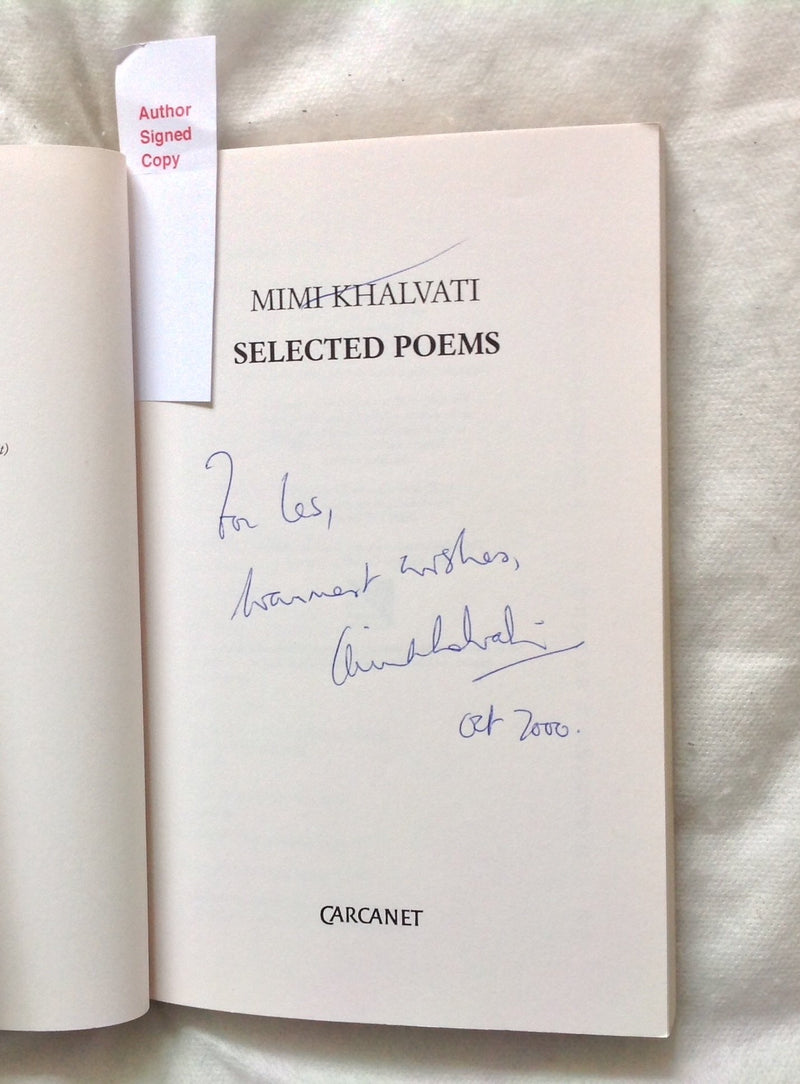 Author
Signed
Copy
MIMI KHALVATI
SELECTED POEMS
For Les,
warmest wishes,
Mimi Khalvati
Oct 2000.
CARCANET
t)